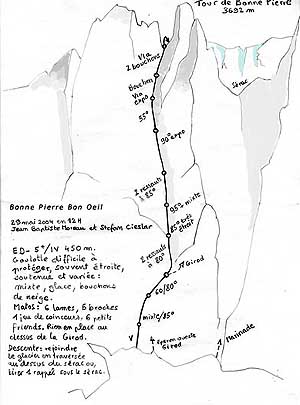 Tour de Bonne Pierre
3692 m
Via
2 bouchons
Bouchon
Via
expo
55°
90° expo
Sérac
2 ressauts
à 85°
95° mixte
85° très
étroit
2 ressauts
à 80°
Girod
60/80°
mixte/85°
V
4
Eperon ouest
Girod
1
Mainade
Bonne Pierre Bon Oeil
29 mai 2004 en 12H
Jean Baptiste Moreau et Stefan Ciesler
ED- 5+/IV 450 m.
Goulotte difficile à
protéger, souvent étroite,
soutenue et variée:
mixte, glace, bouchons
de neige.
Matos: 6 lames, 5 broches
1 jeu de coinceurs, 6 petits
Friends. Rien en place au
dessus de la Girod.
Descente: rejoindre
le glacier en traversée
au dessus du sérac ou,
tirer 1 rappel sous le sérac.